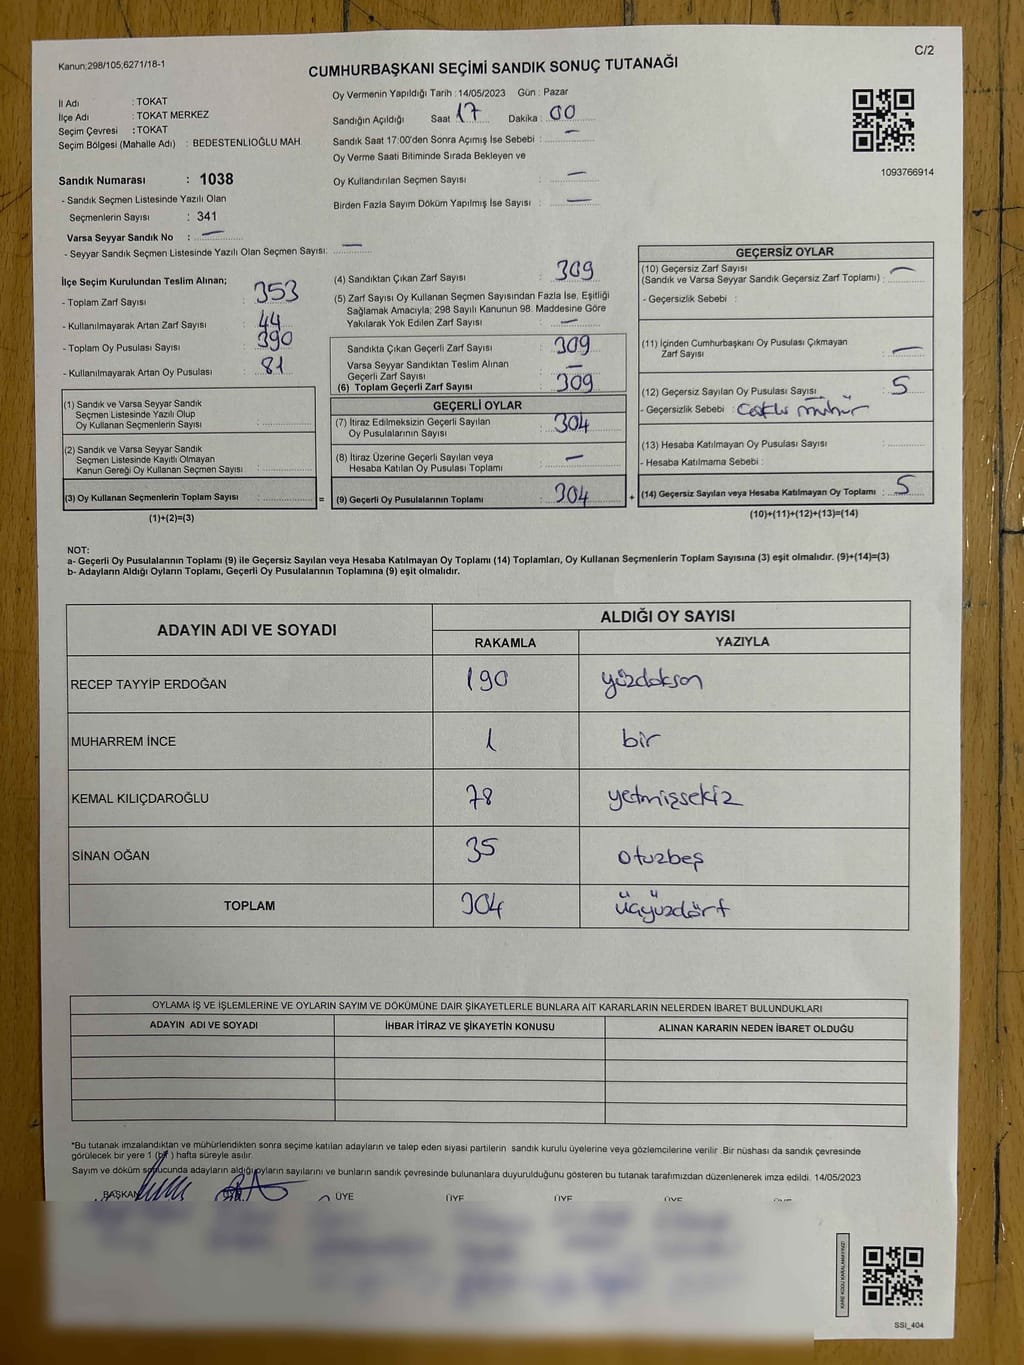 C/2
Kanun;298/105,6271/18-1
CUMHURBAŞKANI SEÇİMİ SANDIK SONUÇ TUTANAĞI
İl Adı : TOKAT
İlçe Adı : TOKAT MERKEZ
Seçim Çevresi : TOKAT
Seçim Bölgesi (Mahalle Adı) : BEDESTENLİOĞLU MAH
Sandık Numarası : 1038
- Sandık Seçmen Listesinde Yazılı Olan
Seçmenlerin Sayısı : 341
Varsa Seyyar Sandık No : —
- Seyyar Sandık Seçmen Listesinde Yazılı Olan Seçmen Sayısı: —
Oy Vermenin Yapıldığı Tarih : 14/05/2023 Gün : Pazar
Sandığın Açıldığı Saat 17 Dakika : 00
Sandık Saat 17:00'den Sonra Açımış İse Sebebi : —
Oy Verme Saati Bitiminde Sırada Bekleyen ve
Oy Kullandırılan Seçmen Sayısı : —
Birden Fazla Sayım Döküm Yapılmış İse Sayısı : —
1093766914
İlçe Seçim Kurulundan Teslim Alınan;
- Toplam Zarf Sayısı : 353
- Kullanılmayarak Artan Zarf Sayısı : 44
- Toplam Oy Pusulası Sayısı : 390
- Kullanılmayarak Artan Oy Pusulası : 81
(1) Sandık ve Varsa Seyyar Sandık
Seçmen Listesinde Yazılı Olup
Oy Kullanan Seçmenlerin Sayısı :
(2) Sandık ve Varsa Seyyar Sandık
Seçmen Listesinde Kayıtlı Olmayan
Kanun Gereği Oy Kullanan Seçmen Sayısı :
(3) Oy Kullanan Seçmenlerin Toplam Sayısı :
(1)+(2)=(3)
(4) Sandıktan Çıkan Zarf Sayısı : 309
(5) Zarf Sayısı Oy Kullanan Seçmen Sayısından Fazla İse, Eşitliği
Sağlamak Amacıyla; 298 Sayılı Kanunun 98. Maddesine Göre
Yakılarak Yok Edilen Zarf Sayısı : —
Sandıkta Çıkan Geçerli Zarf Sayısı : 309
Varsa Seyyar Sandıktan Teslim Alınan
Geçerli Zarf Sayısı : —
(6) Toplam Geçerli Zarf Sayısı : 309
GEÇERLİ OYLAR
(7) İtiraz Edilmeksizin Geçerli Sayılan
Oy Pusulalarının Sayısı : 304
(8) İtiraz Üzerine Geçerli Sayılan veya
Hesaba Katılan Oy Pusulası Toplamı : —
= (9) Geçerli Oy Pusulalarının Toplamı : 304 +
GEÇERSİZ OYLAR
(10) Geçersiz Zarf Sayısı
(Sandık ve Varsa Seyyar Sandık Geçersiz Zarf Toplamı) : —
- Geçersizlik Sebebi :
(11) İçinden Cumhurbaşkanı Oy Pusulası Çıkmayan
Zarf Sayısı : —
(12) Geçersiz Sayılan Oy Pusulası Sayısı : 5
- Geçersizlik Sebebi : mühür
(13) Hesaba Katılmayan Oy Pusulası Sayısı :
- Hesaba Katılmama Sebebi :
(14) Geçersiz Sayılan veya Hesaba Katılmayan Oy Toplamı : 5
(10)+(11)+(12)+(13)=(14)
NOT:
a- Geçerli Oy Pusulalarının Toplamı (9) ile Geçersiz Sayılan veya Hesaba Katılmayan Oy Toplamı (14) Toplamları, Oy Kullanan Seçmenlerin Toplam Sayısına (3) eşit olmalıdır. (9)+(14)=(3)
b- Adayların Aldığı Oyların Toplamı, Geçerli Oy Pusulalarının Toplamına (9) eşit olmalıdır.
ADAYIN ADI VE SOYADI
ALDIĞI OY SAYISI
RAKAMLA YAZIYLA
RECEP TAYYİP ERDOĞAN 190 yüzdokson
MUHARREM İNCE 1 bir
KEMAL KILIÇDAROĞLU 78 yetmişsekiz
SİNAN OĞAN 35 otuzbeş
TOPLAM 304 üçyüzdört
OYLAMA İŞ VE İŞLEMLERİNE VE OYLARIN SAYIM VE DÖKÜMÜNE DAİR ŞİKAYETLERLE BUNLARA AİT KARARLARIN NELERDEN İBARET BULUNDUKLARI
ADAYIN ADI VE SOYADI İHBAR İTİRAZ VE ŞİKAYETİN KONUSU ALINAN KARARIN NEDEN İBARET OLDUĞU
*Bu tutanak imzalandıktan ve mühürlendikten sonra seçime katılan adayların ve talep eden siyasi partilerin sandık kurulu üyelerine veya gözlemcilerine verilir. Bir nüshası da sandık çevresinde
görülecek bir yere 1 (bir) hafta süreyle asılır.
Sayım ve döküm sonucunda adayların aldığı oyların sayılarını ve bunların sandık çevresinde bulunanlara duyurulduğunu gösteren bu tutanak tarafımızdan düzenlenerek imza edildi. 14/05/2023
BAŞKAN ÜYE ÜYE ÜYE ÜYE
KARE KODU KARALAMAYINIZ!
SSI_404